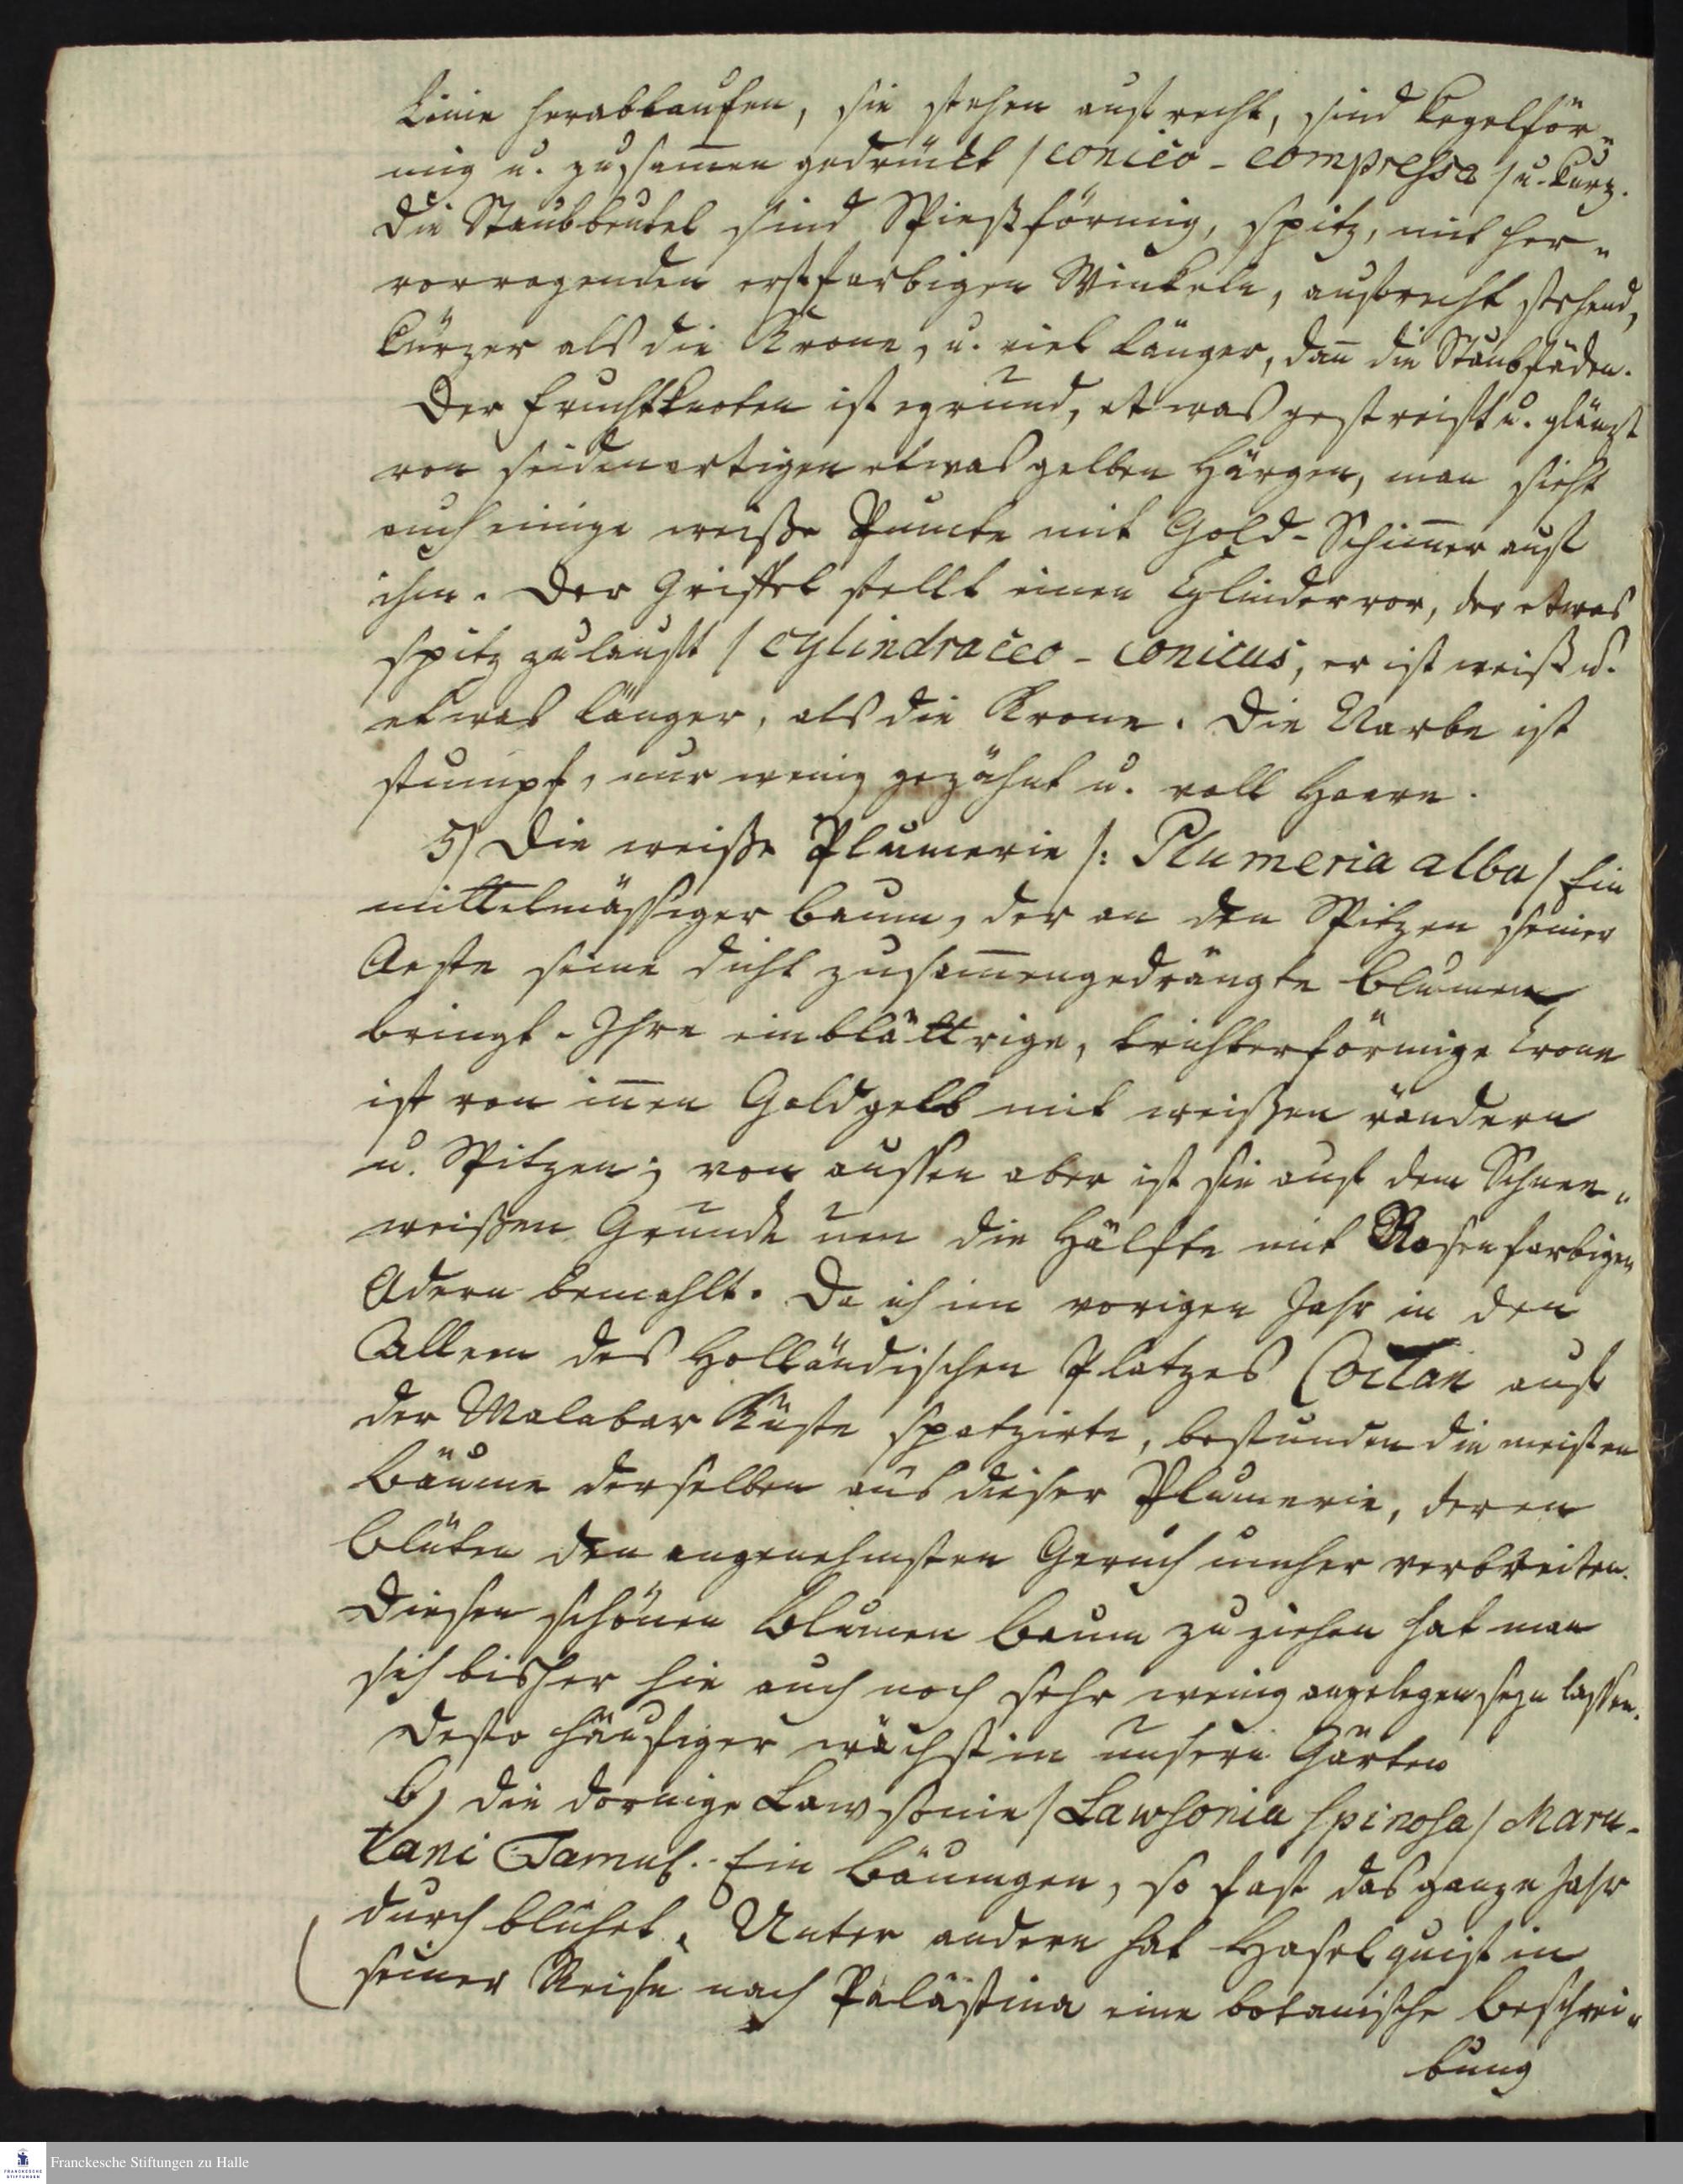 Linie herablaufen, sie stehen aufrecht, sind kegelför„
mig u. zusam̄en gedrückt / conico - compressa / u. kurz.
Die Staubbeutel sind Spießförmig, spitz, mit her„
vorragenden farbigen Winkeln, aufrecht stehend,
kürzer als die Krone, u. viel länger, dan̄ die Staubfäden.
Der Fruchtknoten ist etwas gestreift u. glänzt
von seidenartigen etwas gelben Härgen, man sieht
auch einige weiße Puncte mit Gold-Schim̄er auf
ihm. Der Griffel stellt einen Cylinder vor, der etwas
spitz zuläuft / cylindraceo - conicus, er ist weiß u.
etwas länger, als die Krone. Die Narbe ist
stumpf, nur wenig gezähnt u. voll Haare.
5) Die weiße Plumerie /: Plumeria alba / Ein
mittelmässiger Baum, der an den Spitzen seiner
Aeste seine dicht zusam̄engedrängte Blumen
bringt. Ihre einblättrige, trichterförmige Crone
ist von in̄en Goldgelb mit weißen rändern
u. Spitzen; von aussen aber ist sie auf dem Schnee„
weißen Grunde um die Hälfte mit Rosenfarbigen
Adern bemahlt. Da ich im vorigen Jahr in den
Alleen des Holländischen Platzes Coilan auf
der Malabar Küste spatzirte, bestunden die meisten
Bäume derselben aus dieser Plumerie, deren
Blüten den angenehmsten Geruch umher verbreiten.
Diesen schönen Blumen Baum zu ziehen hat man
sich bisher hie auch noch sehr wenig angelegen seyn lassen.
Desto häufiger wächst in unsern Gärten
6) die dornige Lawsonie / Lawsonia spinosa / Maru-
tani Tamul. Ein Bäumgen, so fast das ganze Jahr
durch blühet. Unter andern hat Haselquist in
seiner Reise nach Palästina eine botanische Beschrei„
bung
Franckesche Stiftungen zu Halle